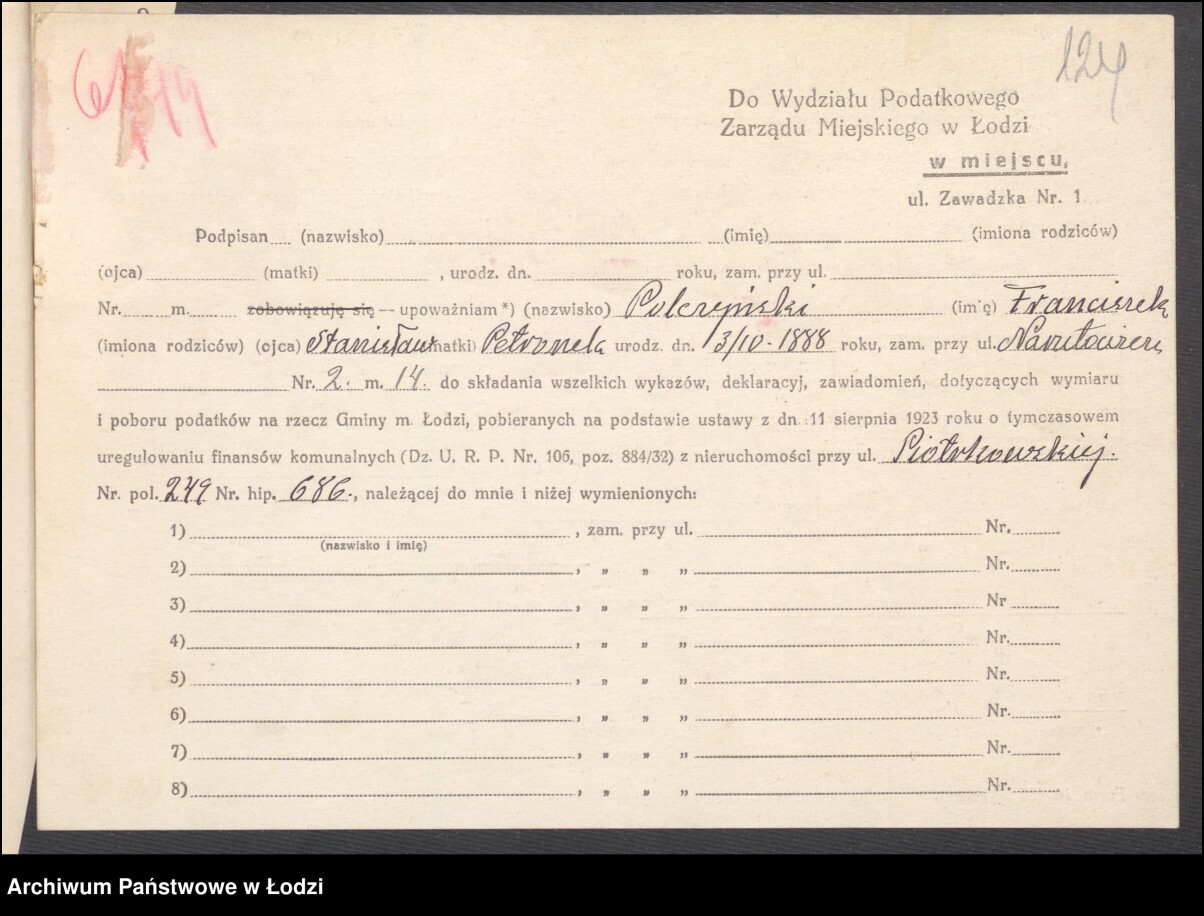 124
61 19
Do Wydziału Podatkowego
Zarządu Miejskiego w Łodzi
w miejscu,
ul. Zawadzka Nr. 1
Podpisan (nazwisko) (imię) (imiona rodziców)
(ojca) (matki) , urodz. dn. roku, zam. przy ul.
Nr. m. zobowiązuję się — upoważniam *) (nazwisko) Polczyński (imię) Franciszek
(imiona rodziców) (ojca) Stanisław (matki) Petronela urodz. dn. 3/10-1888 roku, zam. przy ul. Narutowicza
Nr. 2. m. 14. do składania wszelkich wykazów, deklaracyj, zawiadomień, dotyczących wymiaru
i poboru podatków na rzecz Gminy m. Łodzi, pobieranych na podstawie ustawy z dn. 11 sierpnia 1923 roku o tymczasowem
uregulowaniu finansów komunalnych (Dz. U. R. P. Nr. 106, poz. 884/32) z nieruchomości przy ul. Piotrkowskiej.
Nr. pol. 249 Nr. hip. 686., należącej do mnie i niżej wymienionych:
1) , zam. przy ul. Nr.
(nazwisko i imię)
2) , „ „ „ Nr.
3) , „ „ „ Nr
4) , „ „ „ Nr.
5) , „ „ „ Nr.
6) , „ „ „ Nr.
7) , „ „ „ Nr.
8) , „ „ „ Nr.
Archiwum Państwowe w Łodzi